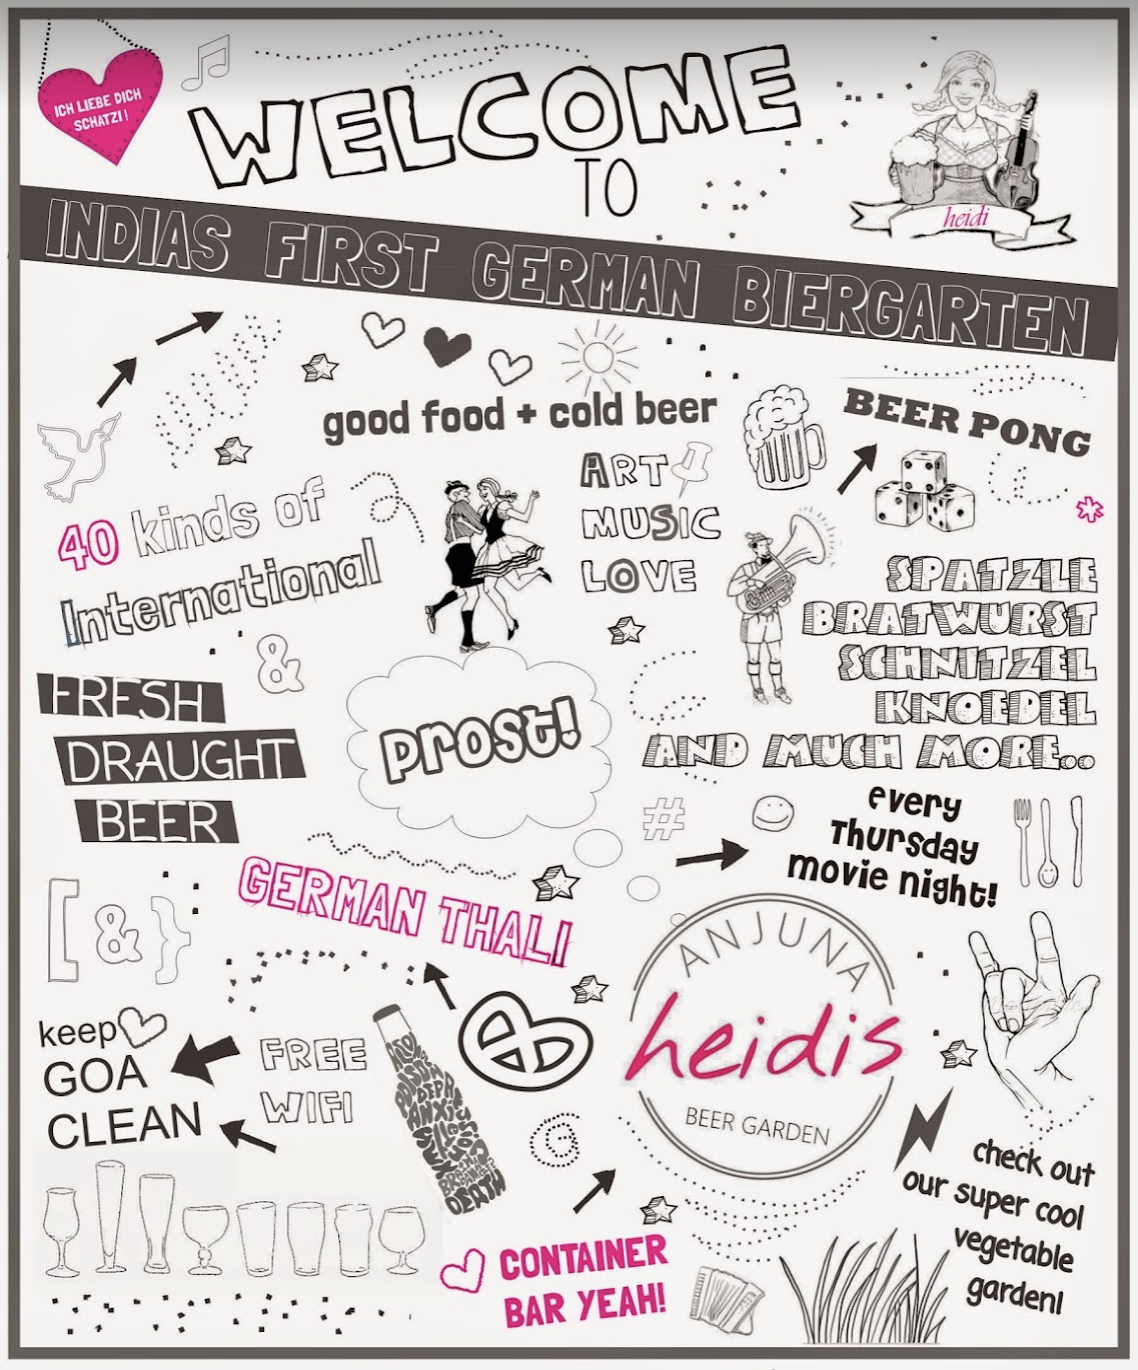 ICH LIEBE DICH
SCHATZI!
WELCOME
TO
heidi
INDIAS FIRST GERMAN BIERGARTEN
good food + cold beer
BEER PONG
ART
MUSIC
LOVE
40 kinds of
International
&
FRESH
DRAUGHT
BEER
prost!
SPATZLE
BRATWURST
SCHNITZEL
KNOEDEL
AND MUCH MORE..
#
every
Thursday
movie night!
GERMAN THALI
[ & }
ANJUNA
heidis
BEER GARDEN
keep
GOA
CLEAN
FREE
WIFI
DEATH
check out
our super cool
vegetable
garden!
CONTAINER
BAR YEAH!